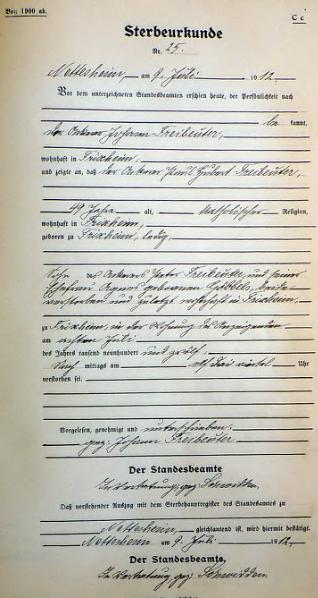 Von 1900 ab.
C c
Sterbeurkunde
Nr. 25.
Nettersheim, am 9. Juli 1912.
Vor dem unterzeichneten Standesbeamten erschien heute, der Persönlichkeit nach
be kannt,
der Ackerer Johann Freibeuter,
wohnhaft in Frixheim,
und zeigte an, daß der Ackerer Paul Hubert Freibeuter,
49 Jahre alt, katholischer Religion,
wohnhaft in Frixheim,
geboren zu Frixheim, ledig,
Sohn des Ackerers Peter Freibeuter, und seiner
Ehefrau Agnes geborenen Göbbels, beide
verstorben und zuletzt wohnhaft in Frixheim,
zu Frixheim, in der Wohnung des Anzeigenden,
am achten Juli
des Jahres tausend neunhundert und zwölf,
Nach mittags um drei viertel Uhr
verstorben sei.
Vorgelesen, genehmigt und unterschrieben.
gez. Johann Freibeuter
Der Standesbeamte
In Vertretung, gez.
Daß vorstehender Auszug mit dem Sterbehauptregister des Standesamtes zu
Nettersheim, gleichlautend ist, wird hiermit bestätigt.
Nettersheim am 9. Juli 1912.
Der Standesbeamte,
In Vertretung gez.